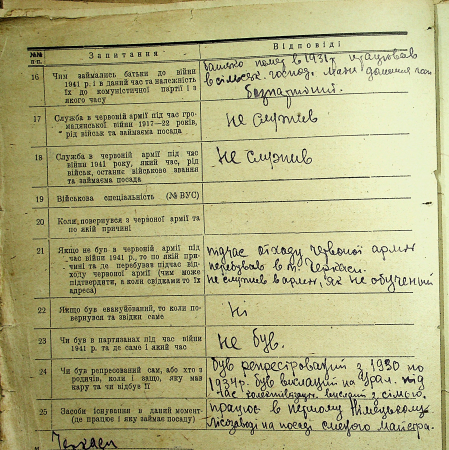 №№ п-п.
Запитання
Відповіді
16
Чим займались батьки до війни
1941 р. і в даний час та належність
їх до комуністичної партії і з
якого часу
батько помер в 1931 р. працював
в сільськ. господ. мати домашня
безпартійний.
17
Служба в червоній армії під час гро-
мадянської війни 1917—22 років,
рід військ та займаєма посада
Не служив
18
Служба в червоній армії під час
війни 1941 року, який час, рід
військ, останнє військове звання
та займаєма посада
Не служив
19
Військова спеціяльність (№ ВУС)
20
Коли повернувся з червоної армії та
по якій причині
21
Якщо не був в червоній армії під
час війни 1941 р., то по якій при-
чині та де перебував підчас від-
ходу червоної армії (чим може
підтвердити, а коли свідками то їх
адреса)
підчас відходу червоної армії
перебував в м. Черкаси.
не служив в армії, як не обучений
22
Якщо був евакуйований, то коли по-
вернувся та звідки саме
Ні
23
Чи був в партизанах під час війни
1941 р. та де саме і який час
Не був.
24
Чи був репресований сам, або хто з
родичів, коли і защо, яку мав
кару та чи відбув її
був репресірований з 1930 по
1934 р. був висланий на Урал. під
час колективізац. висланий з сім'єю.
25
Засоби існування в даний момент
(де працює і яку займає посаду)
працює в першому Німецькому
лісозаводі на посаді майстра.